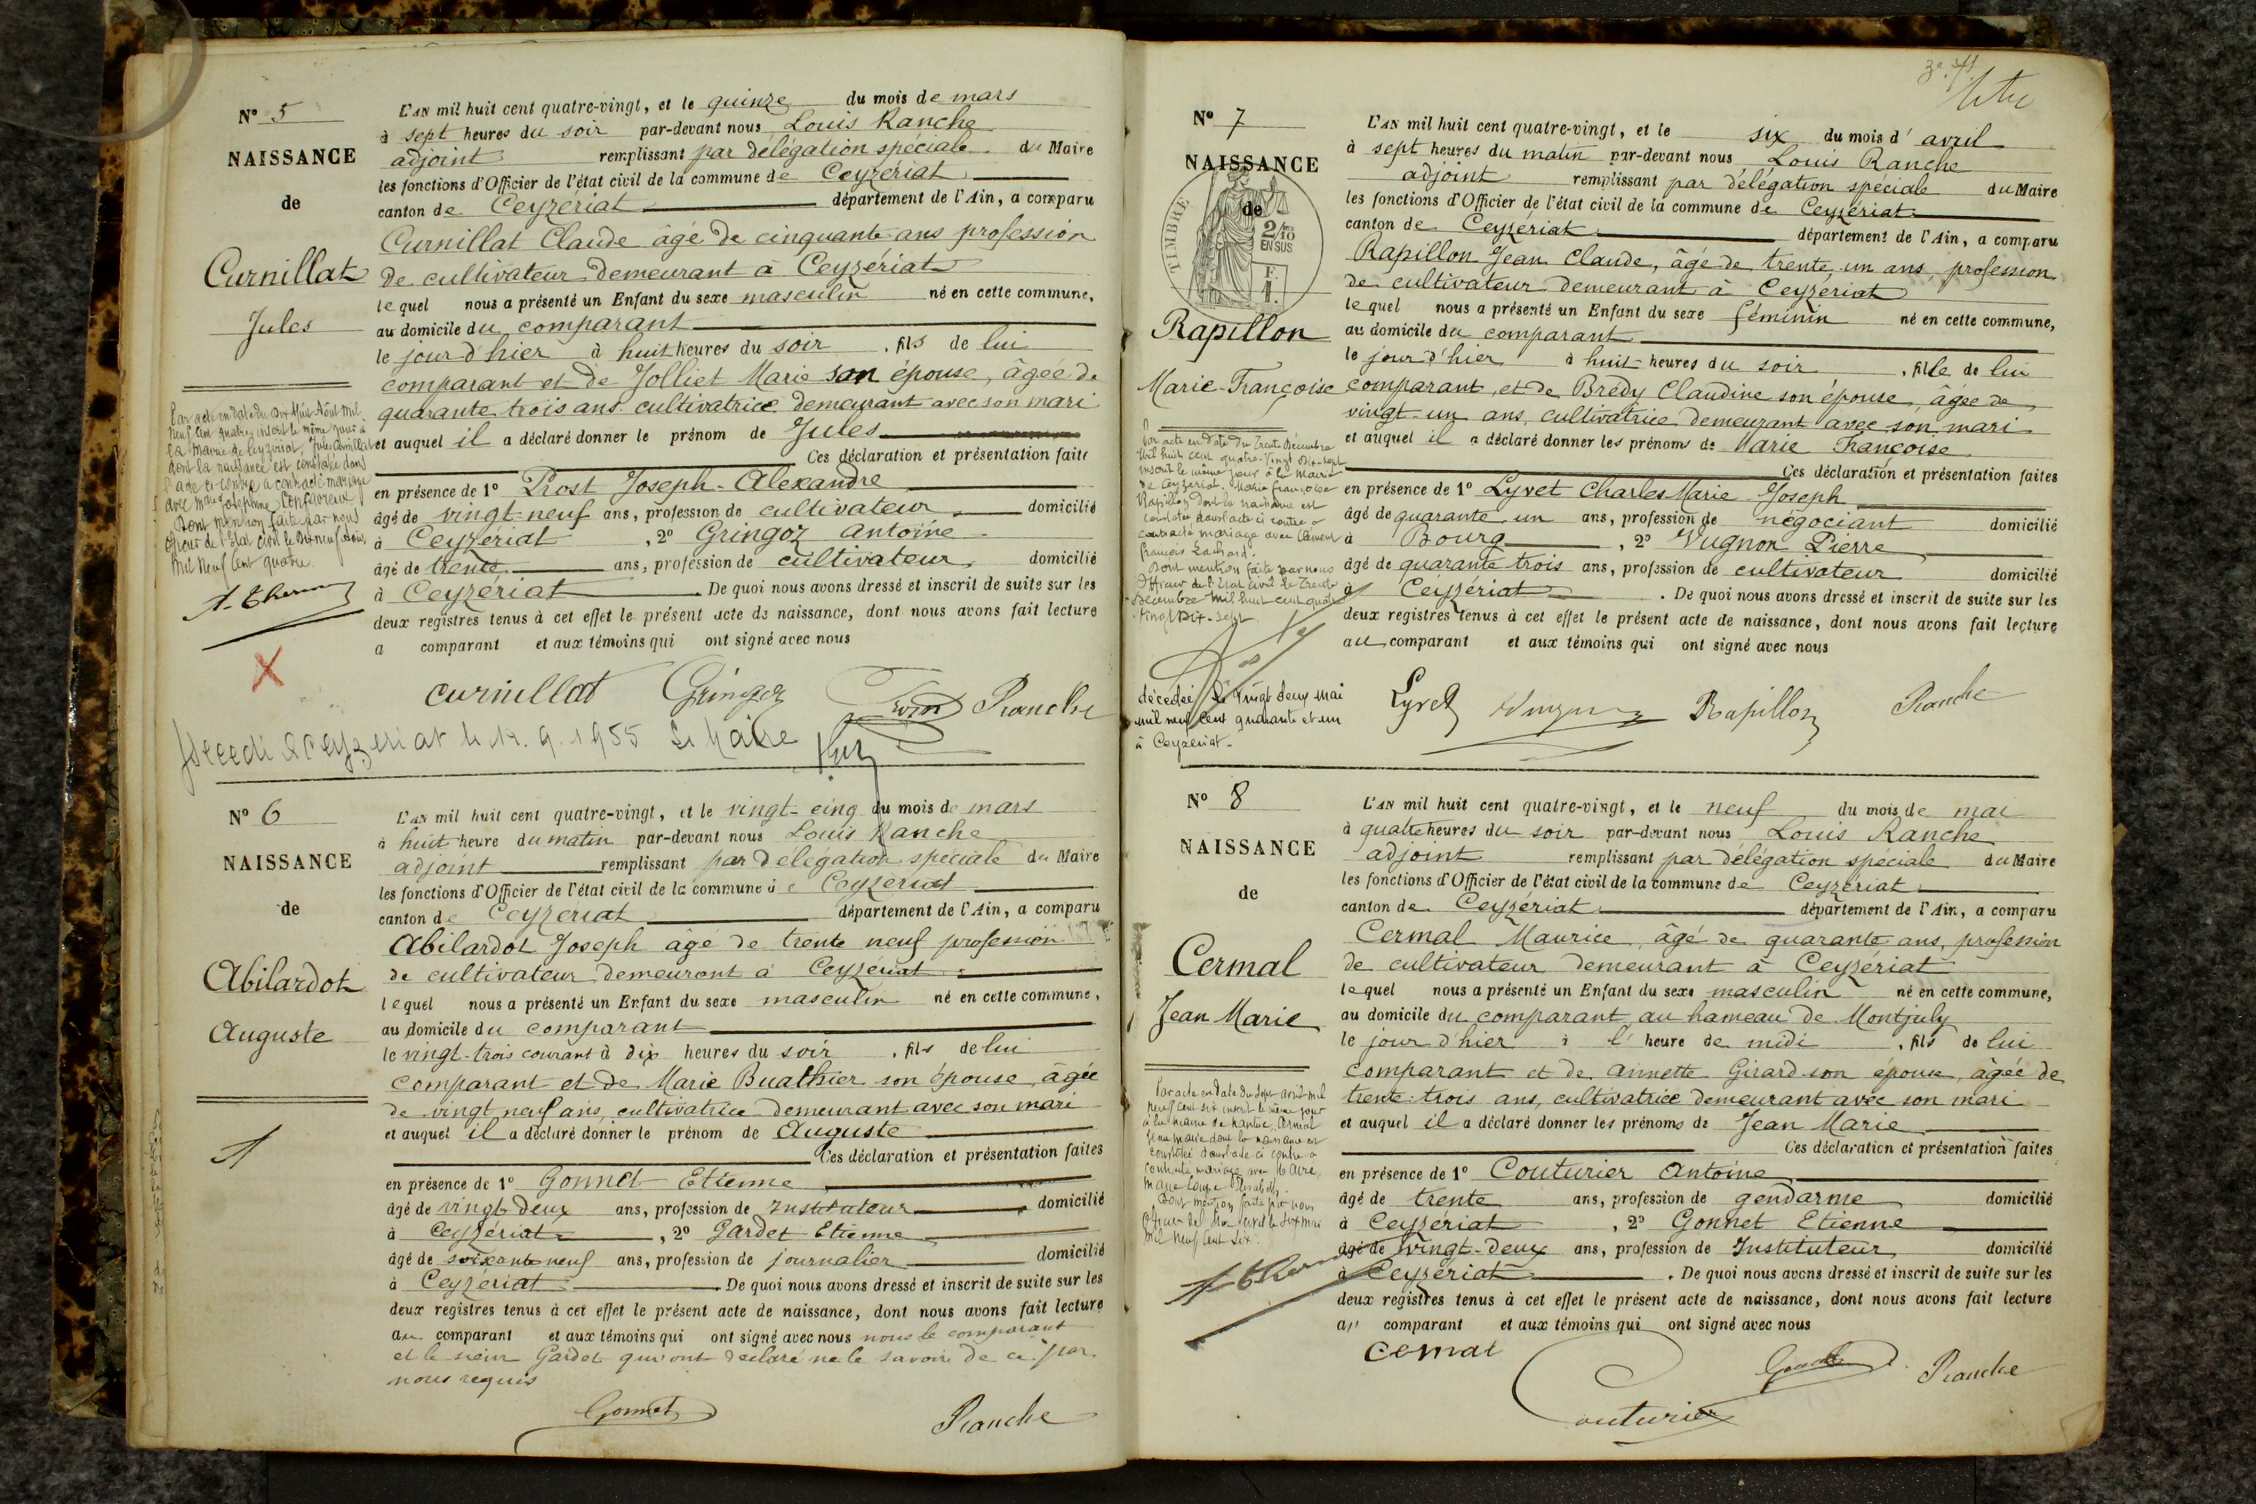 Nº 5
NAISSANCE
de
Curnillat
Jules
L'AN mil huit cent quatre-vingt, et le quinze du mois de mars
à sept heures du soir par-devant nous Louis Ranche
adjoint remplissant par délégation spéciale du Maire
les fonctions d'Officier de l'état civil de la commune de Ceyzériat
canton de Ceyzériat département de l'Ain, a comparu
Curnillat Claude âgé de cinquante ans profession
de cultivateur demeurant à Ceyzériat
lequel nous a présenté un Enfant du sexe masculin né en cette commune,
au domicile du comparant
le jour d'hier à huit heures du soir, fils de lui
comparant et de Jolliet Marie son épouse, âgée de
quarante trois ans cultivatrice demeurant avec son mari
et auquel il a déclaré donner le prénom de Jules
Ces déclaration et présentation faites
en présence de 1º Prost Joseph-Alexandre
âgé de vingt-neuf ans, profession de cultivateur domicilié
à Ceyzériat, 2º Gringoz Antoine
âgé de trente ans, profession de cultivateur domicilié
à Ceyzériat. De quoi nous avons dressé et inscrit de suite sur les
deux registres tenus à cet effet le présent acte de naissance, dont nous avons fait lecture
a comparant et aux témoins qui ont signé avec nous
Par acte en date du dix huit Août mil
neuf cent quatre, inscrit le même jour à
la Mairie de Ceyzériat, Jules Curnillat
dont la naissance est constatée dans
l'acte ci-contre a contracté mariage
avec Josephine
Dont mention faite par nous
officier de l'Etat civil le Dix neuf Août
mil neuf cent quatre
curnillat Gringoz Prost Ranche
Décédé à Ceyzeriat le 14.9.1955 Le Maire
Nº 6
NAISSANCE
de
Abilardot
Auguste
L'AN mil huit cent quatre-vingt, et le vingt-cinq du mois de mars
à huit heure du matin par-devant nous Louis Ranche
adjoint remplissant par délégation spéciale du Maire
les fonctions d'Officier de l'état civil de la commune de Ceyzériat
canton de Ceyzériat département de l'Ain, a comparu
Abilardot Joseph âgé de trente neuf profession
de cultivateur demeurant à Ceyzériat
lequel nous a présenté un Enfant du sexe masculin né en cette commune,
au domicile du comparant
le vingt-trois courant à dix heures du soir, fils de lui
comparant et de Marie Buathier son épouse, âgée
de vingt neuf ans, cultivatrice demeurant avec son mari
et auquel il a déclaré donner le prénom de Auguste
Ces déclaration et présentation faites
en présence de 1º Gonnet Etienne
âgé de vingt-deux ans, profession de Instituteur domicilié
à Ceyzériat, 2º Gardet Etienne
âgé de soixante neuf ans, profession de journalier domicilié
à Ceyzériat. De quoi nous avons dressé et inscrit de suite sur les
deux registres tenus à cet effet le présent acte de naissance, dont nous avons fait lecture
au comparant et aux témoins qui ont signé avec nous nous le comparant
et le sieur Gardet qui ont déclaré ne le savoir de ce par
nous requis
Gonnet Ranche
Nº 7
NAISSANCE
de
TIMBRE
2/10
EN SUS
F.
1.
Rapillon
Marie-Françoise
L'AN mil huit cent quatre-vingt, et le six du mois d'avril
à sept heures du matin par-devant nous Louis Ranche
adjoint remplissant par délégation spéciale du Maire
les fonctions d'Officier de l'état civil de la commune de Ceyzériat
canton de Ceyzériat département de l'Ain, a comparu
Rapillon Jean Claude, âgé de trente un ans, profession
de cultivateur demeurant à Ceyzériat
lequel nous a présenté un Enfant du sexe féminin né en cette commune,
au domicile du comparant
le jour d'hier à huit heures du soir, fille de lui
comparant, et de Brédy Claudine son épouse, âgée de
vingt-un ans, cultivatrice demeurant avec son mari
et auquel il a déclaré donner les prénoms de Marie Françoise
Ces déclaration et présentation faites
en présence de 1º Lyvet Charles Marie Joseph
âgé de quarante un ans, profession de négociant domicilié
à Bourg, 2º Vugnon Pierre
âgé de quarante trois ans, profession de cultivateur domicilié
à Ceyzériat. De quoi nous avons dressé et inscrit de suite sur les
deux registres tenus à cet effet le présent acte de naissance, dont nous avons fait lecture
au comparant et aux témoins qui ont signé avec nous
Par acte en date du Trente Décembre
Mil huit cent quatre-vingt Dix-sept
inscrit le même jour à la Mairie
de Ceyzériat, Marie Françoise
Rapillon dont la naissance est
constatée dans l'acte ci contre a
contracté mariage avec Clément
François
Dont mention faite par nous
Officier de l'Etat civil le Trente
Décembre mil huit cent quatre
vingt Dix-sept
décédée le vingt deux mai
mil neuf cent quarante et un
à Ceyzeriat
Lyvet Rapillon Ranche
Nº 8
NAISSANCE
de
Cermal
Jean Marie
L'AN mil huit cent quatre-vingt, et le neuf du mois de mai
à quatre heures du soir par-devant nous Louis Ranche
adjoint remplissant par délégation spéciale du Maire
les fonctions d'Officier de l'état civil de la commune de Ceyzériat
canton de Ceyzériat département de l'Ain, a comparu
Cermal Maurice, âgé de quarante ans, profession
de cultivateur demeurant à Ceyzériat
lequel nous a présenté un Enfant du sexe masculin né en cette commune,
au domicile du comparant au hameau de Montjuly
le jour d'hier à l'heure de midi, fils de lui
comparant et de Annette Girard son épouse, âgée de
trente-trois ans, cultivatrice demeurant avec son mari
et auquel il a déclaré donner les prénoms de Jean Marie
Ces déclaration et présentation faites
en présence de 1º Couturier Antoine
âgé de trente ans, profession de gendarme domicilié
à Ceyzériat, 2º Gonnet Etienne
âgé de vingt-deux ans, profession de Instituteur domicilié
à Ceyzériat. De quoi nous avons dressé et inscrit de suite sur les
deux registres tenus à cet effet le présent acte de naissance, dont nous avons fait lecture
au comparant et aux témoins qui ont signé avec nous
Par acte en date du avril mil
neuf cent six inscrit le même jour
à la mairie de Nantua, Cermal
Jean Marie dont la naissance est
constatée dans l'acte ci contre a
contracté mariage avec
Marie Louise Elisabeth
Dont mention faite par nous
officier de l'Etat civil le Dix mai
mil neuf cent six
cemal Gonnet Ranche
Couturier